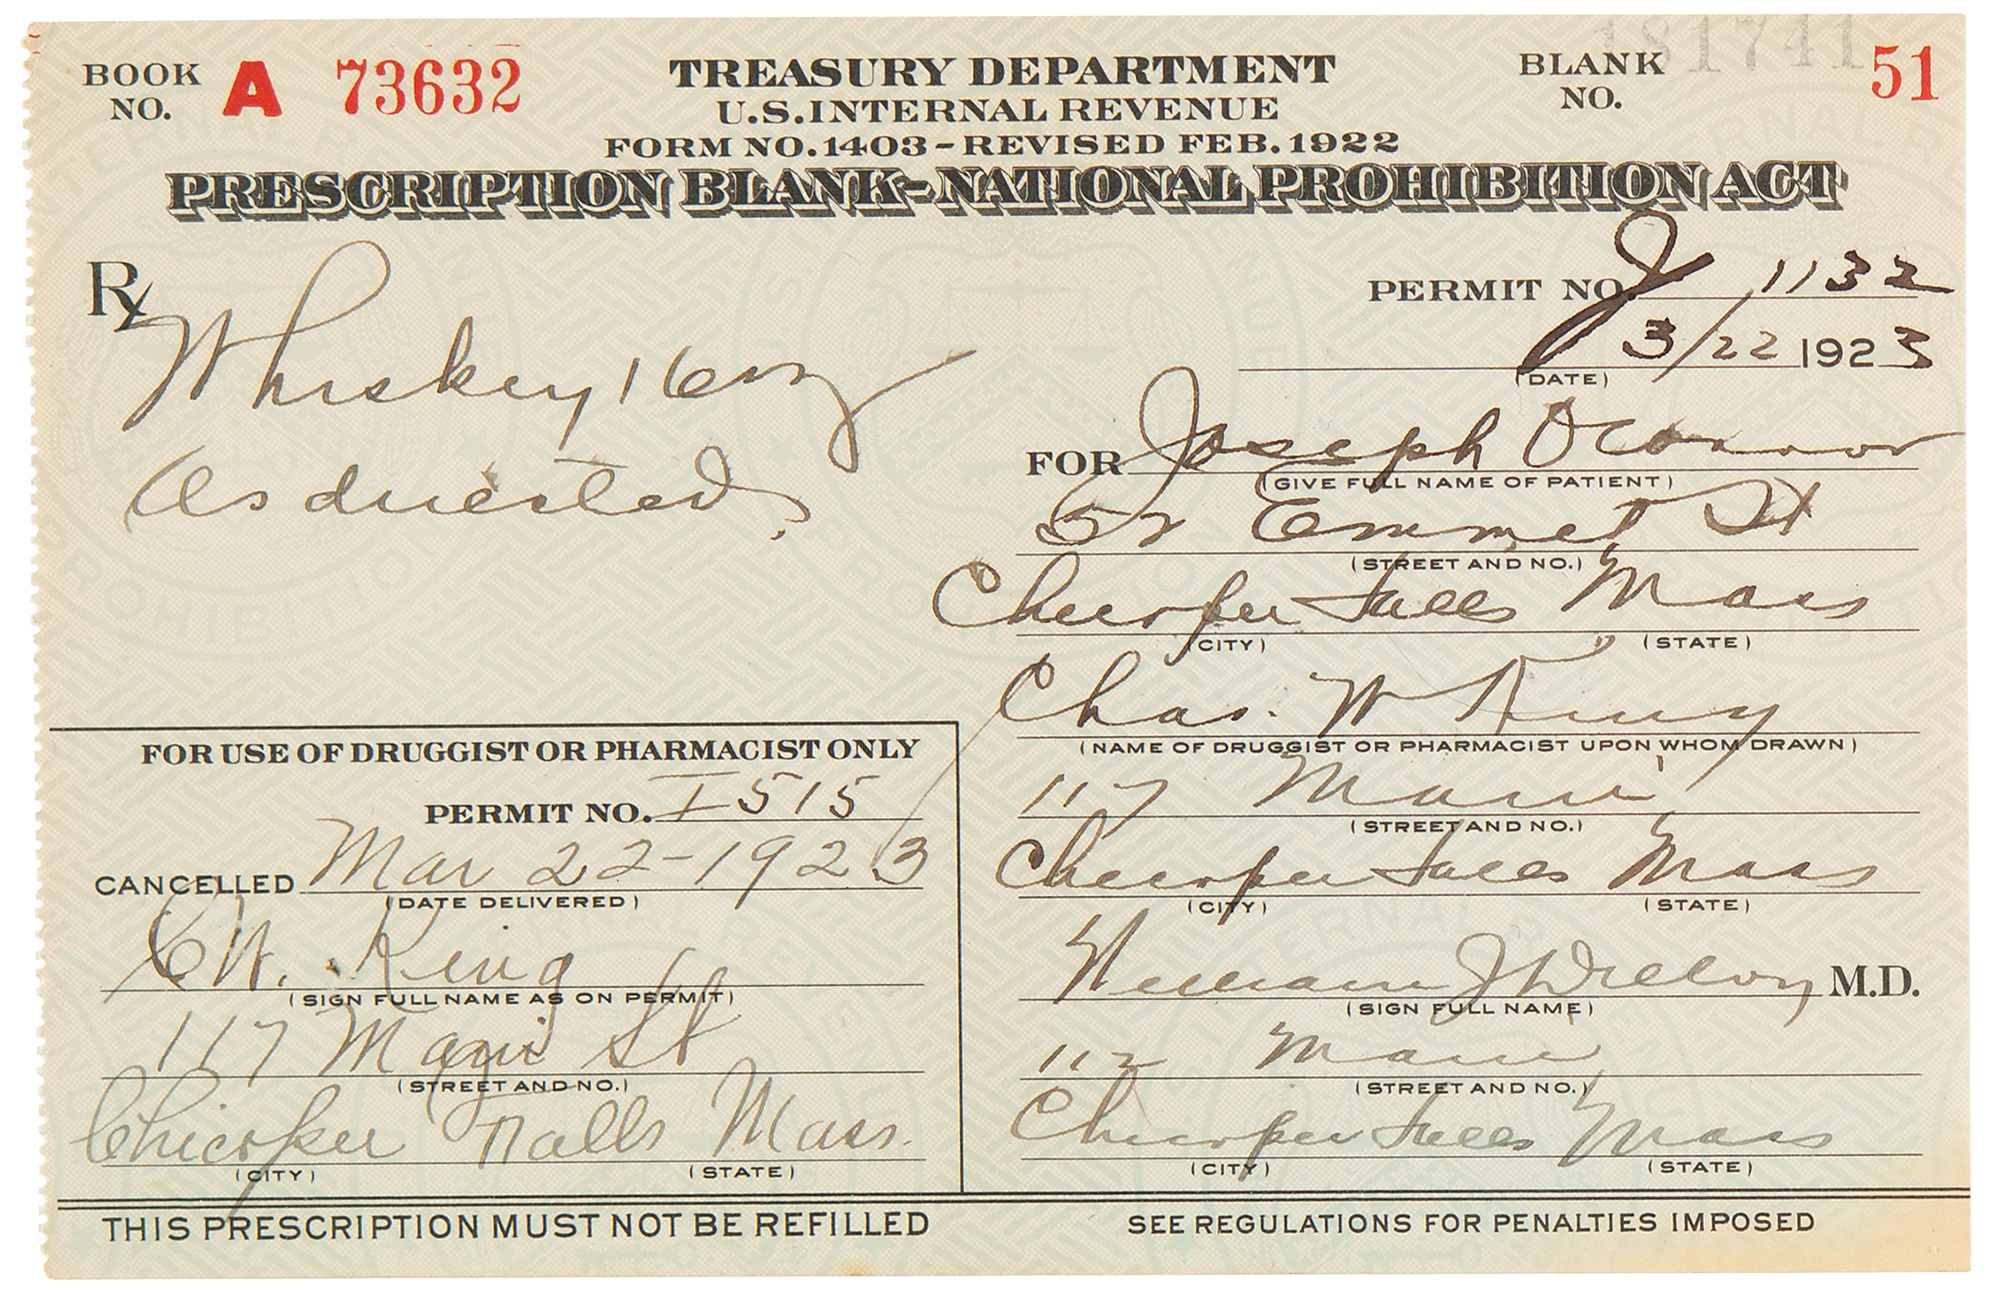 BOOK NO. A 73632
TREASURY DEPARTMENT
U.S. INTERNAL REVENUE
FORM NO. 1403 - REVISED FEB. 1922
BLANK NO. 51
181741
PRESCRIPTION BLANK - NATIONAL PROHIBITION ACT
Rx
Whiskey 16 oz
As directed.
PERMIT NO. J 1132
3/22 1923
(DATE)
FOR Joseph Oconnor
(GIVE FULL NAME OF PATIENT)
52 Emmet St
(STREET AND NO.)
Chicopee Falls Mass
(CITY) (STATE)
Chas. W King
(NAME OF DRUGGIST OR PHARMACIST UPON WHOM DRAWN)
117 Main
(STREET AND NO.)
Chicopee Falls Mass
(CITY) (STATE)
William J M.D.
(SIGN FULL NAME)
112 Main
(STREET AND NO.)
Chicopee Falls Mass
(CITY) (STATE)
FOR USE OF DRUGGIST OR PHARMACIST ONLY
PERMIT NO. I 515
CANCELLED Mar 22-1923
(DATE DELIVERED)
C.W. King
(SIGN FULL NAME AS ON PERMIT)
117 Main St
(STREET AND NO.)
Chicopee Falls Mass.
(CITY) (STATE)
THIS PRESCRIPTION MUST NOT BE REFILLED
SEE REGULATIONS FOR PENALTIES IMPOSED